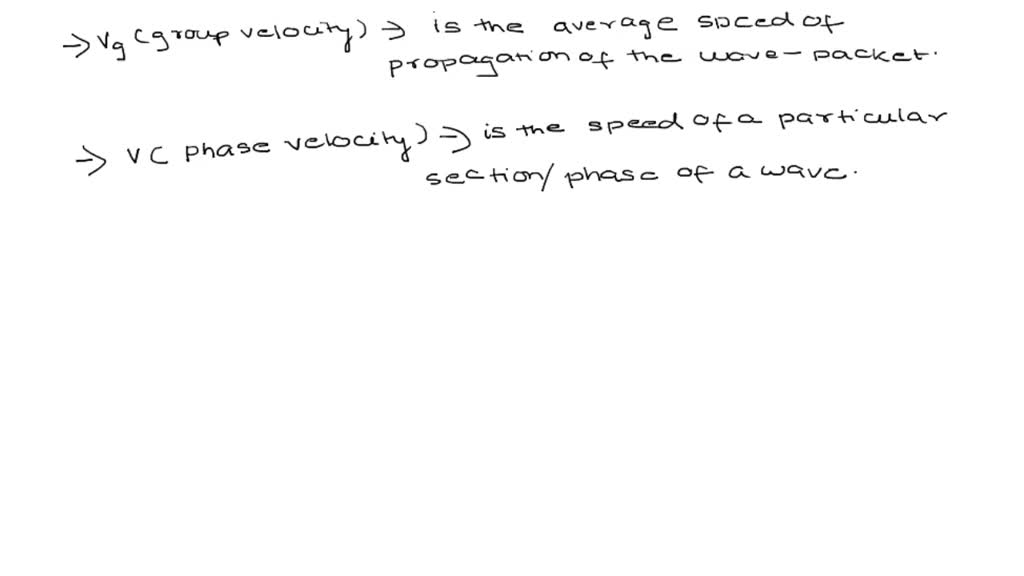 → Vg (group velocity) → is the average speed of
propagation of the wave-packet.
→ V( phase velocity) → is the speed of a particular
section/phase of a wave.